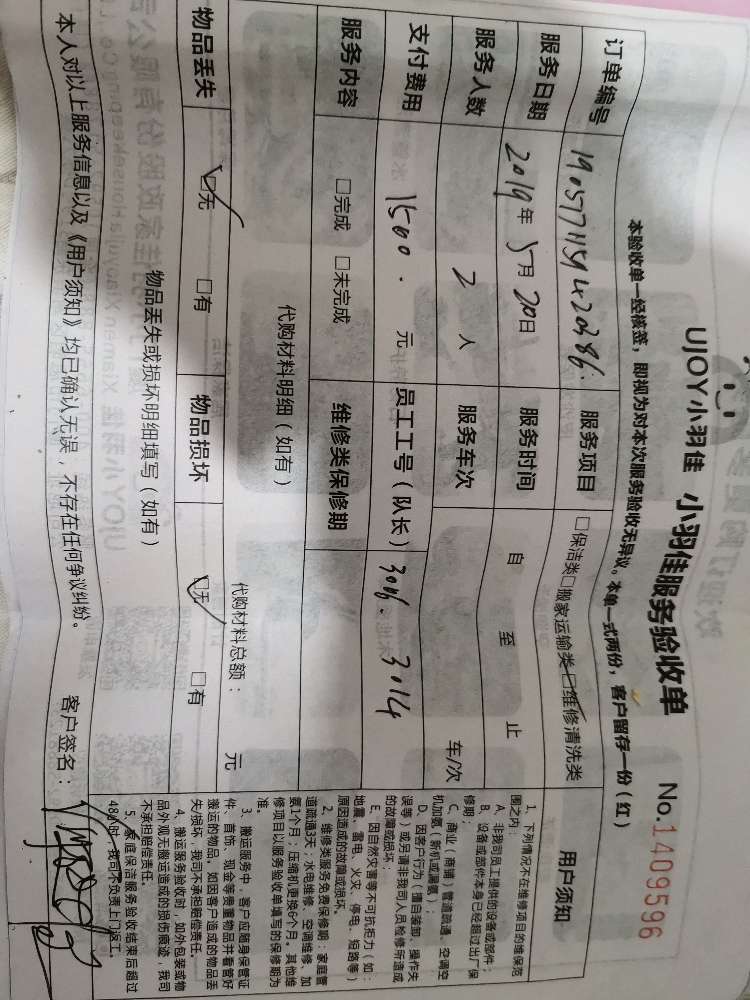 UJOY小羽佳 小羽佳服务验收单 No.1409596
本验收单一经核签，即视为对本次服务验收无异议。本单一式两份，客户留存一份（红）
订单编号 服务项目 □保洁类□搬家运输类□维修清洗类
服务日期 2019年5月20日 服务时间 自 至 止
服务人数 2人 服务车次 车/次
支付费用 1500.元 员工工号（队长） 3006. 3014
服务内容 □完成 □未完成 维修类保修期
代购材料明细（如有）
代购材料总额： 元
物品丢失 □无 □有 物品损坏 □无 □有
物品丢失或损坏明细填写（如有）
本人对以上服务信息以及《用户须知》均已确认无误，不存在任何争议纠纷。 客户签名：
用户须知
1、下列情况不在维修项目的维保范
围之内：
A、非我司员工提供的设备或部件；
B、设备或部件本身已经超过出厂保
修期；
C、商业（商铺）管道疏通、空调空
机加氨（新机或漏氨）；
D、因客户行为（擅自装卸、操作失
误等）或另请非我司人员检修所造成
的故障或损坏；
E、因自然灾害等不可抗拒力（如：
地震、雷电、火灾、停电、短路等）
原因造成的故障或损坏。
2、维修类服务免费保修期：家庭管
道疏通3天；水电维修、空调维修、加
氨1个月；压缩机更换6个月。其他维
修项目以服务验收单填写的保修期为
准。
3、搬运服务中，客户应随身保管证
件、首饰、现金等贵重物品并看管好
搬运的物品，如因客户造成的物品丢
失/损坏，我司不承担赔偿责任。
4、搬运服务验收时，如外包装或物
品外观无搬运造成的损伤痕迹，我司
不承担赔偿责任。
5、家庭保洁服务验收结束后超过
48小时，我司不负责上门返工。